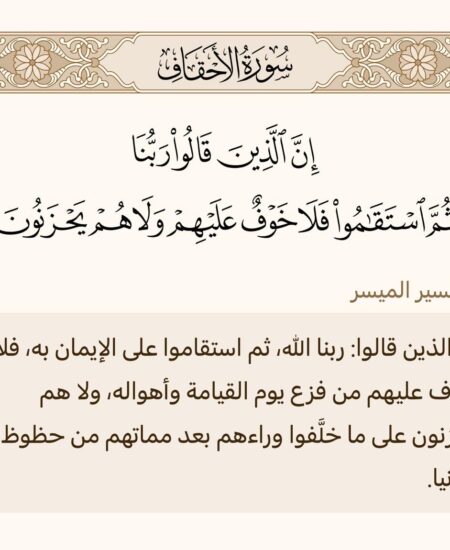 سُورَةُ الأَحْقَافِ
إِنَّ ٱلَّذِينَ قَالُوا۟ رَبُّنَا
ثُمَّ ٱسْتَقَـٰمُوا۟ فَلَا خَوْفٌ عَلَيْهِمْ وَلَا هُمْ يَحْزَنُونَ
الميسر
الذين قالوا: ربنا الله، ثم استقاموا على الإيمان به، فلا
عليهم من فزع يوم القيامة وأهواله، ولا هم
على ما خلَّفوا وراءهم بعد مماتهم من حظوظ